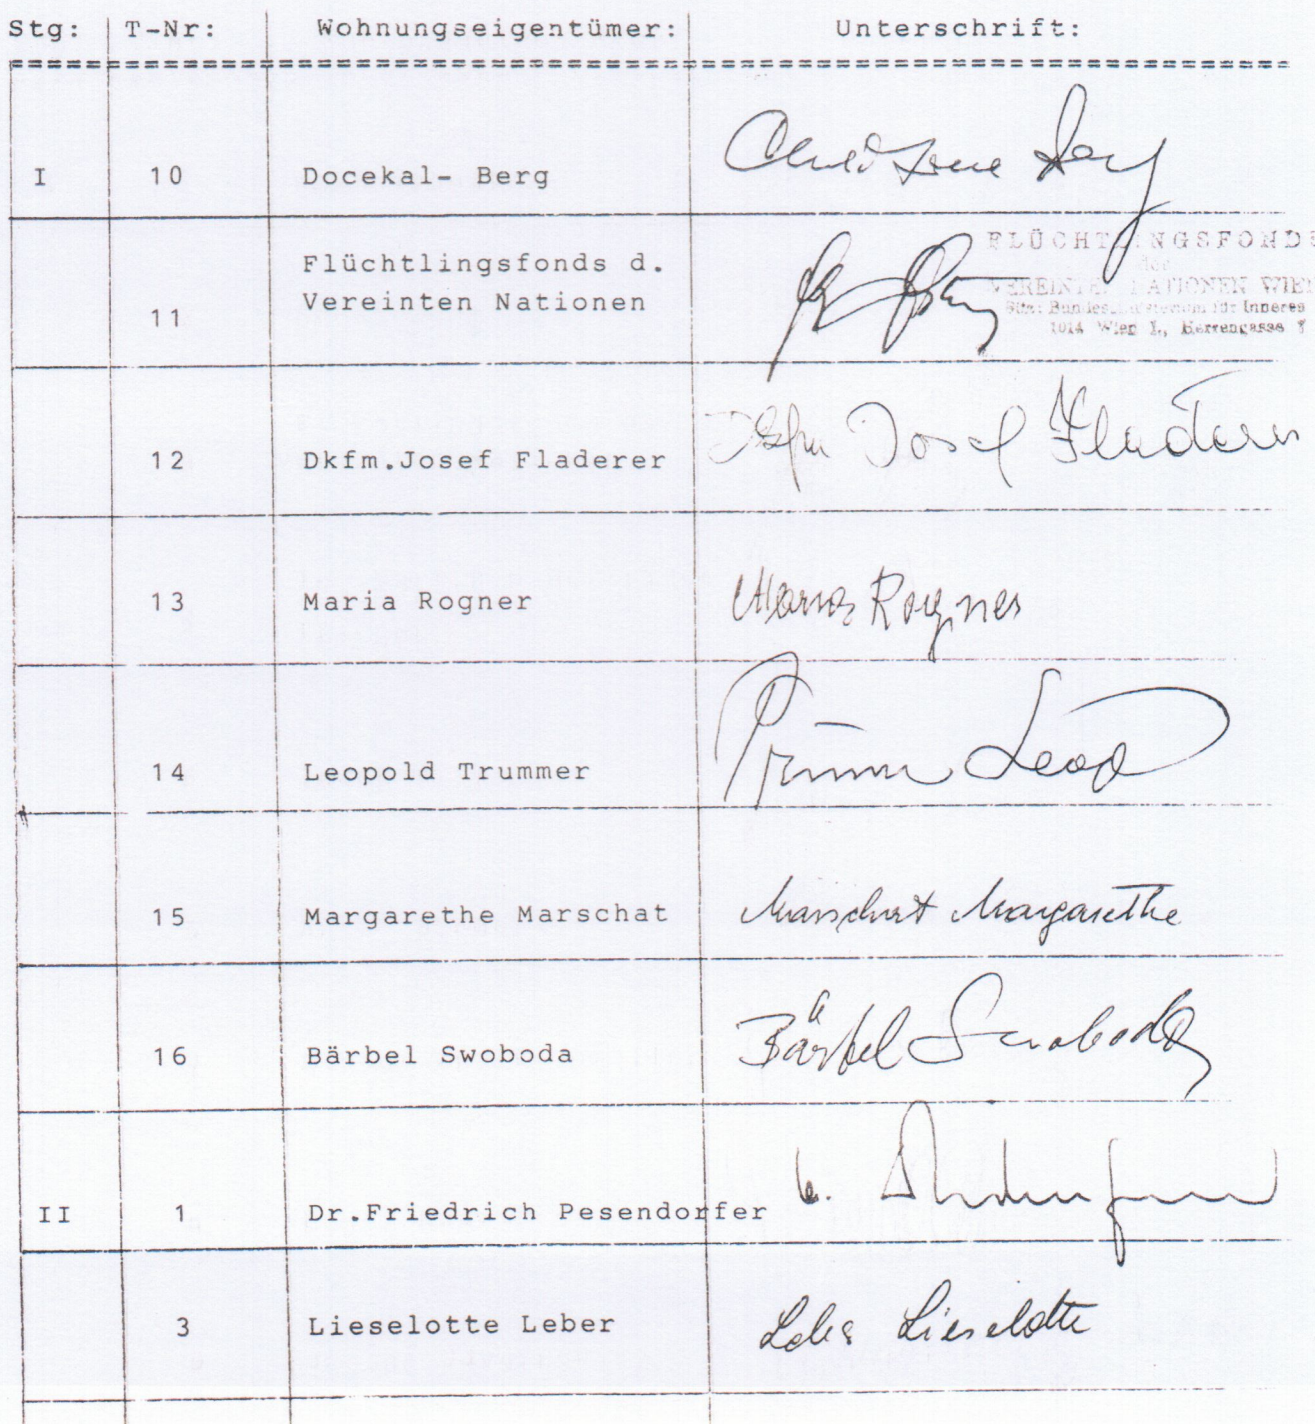 Stg: T-Nr: Wohnungseigentümer: Unterschrift:
I 10 Docekal- Berg
Flüchtlingsfonds d.
Vereinten Nationen
11
FLÜCHTLINGSFONDS
der
VEREINTEN NATIONEN WIEN
Sitz: Bundesministerium für Inneres
1014 Wien I., Herrengasse 7
12 Dkfm.Josef Fladerer Dkfm Josef Fladerer
13 Maria Rogner Maria Rogner
14 Leopold Trummer Leop
15 Margarethe Marschat Marschat Margarethe
16 Bärbel Swoboda Bärbel Swoboda
II 1 Dr.Friedrich Pesendorfer
3 Lieselotte Leber Leber Lieselotte